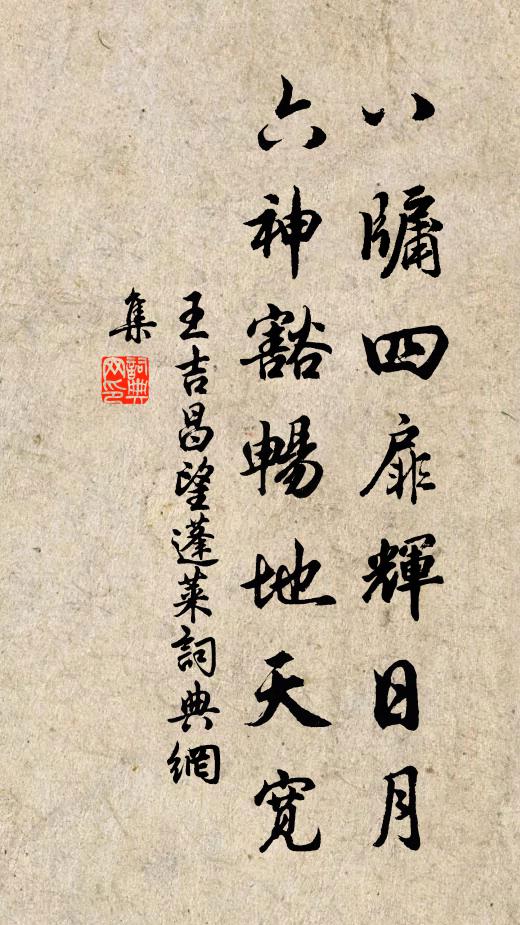 八牗四扉輝日月
六神豁暢地天寬
王吉昌望蓬萊詞典網
集
詞典
网印